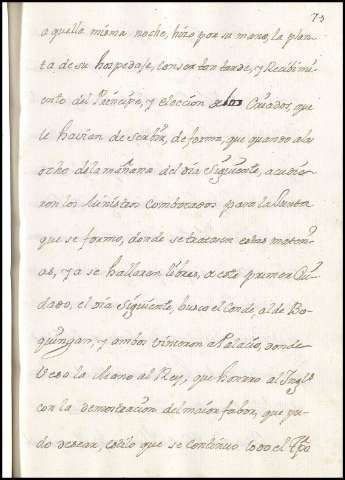 73
aquella misma noche, hizo por su mano, la plan-
ta de su hospedaje, con ser tan tarde, y Recibimi-
ento del Principe, y eleccion de los Criados, que
le havian de servir, de forma, que quando a las
ocho de la mañana del dia Siguiente, acudie-
ron los Ministros Combocados para la Junta
que se formo, donde se tratasen estas materi-
as, ya se hallaron libres, de este primer Cui-
dado, el dia Siguiente, busco el Conde, al de Bo-
quingan, y ambos vinieron a Palacio, donde
Veso la Mano al Rey, que honrro al Ingles
con la demostracion del maior fabor, que pu-
do desear, estilo que se continuo todo el tpo